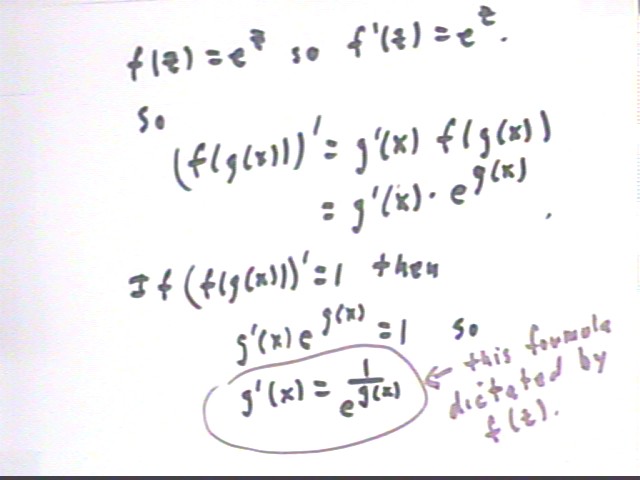 f(z) = e^z so f'(z) = e^z.
So
(f(g(x)))' = g'(x) f(g(x))
= g'(x) · e^g(x).
If (f(g(x)))' = 1 then
g'(x) e^g(x) = 1 so
g'(x) = 1/e^g(x)
← this formula
dictated by
f(z).